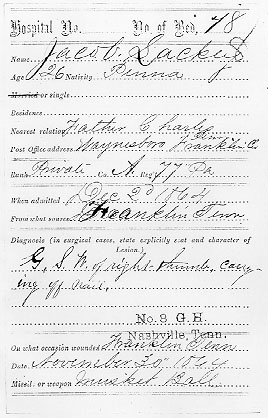 Hospital No. No. of Bed, 78
Name, Jacob Lackey
Age, 26 Nativity, Penna
Married or single,
Residence,
Nearest relation, Father Charles
Post Office address, Waynesboro Franklin Co
Penn
Rank, Private Co. A, Reg't 77 Pa
When admitted, Dec 3d 1864
From what source, Franklin Tenn
Diagnosis (in surgical cases, state explicitly seat and character of
Lesion.)
G. S. W. of right thumb, carry-
ing off
No. 8 G. H.
Nashville, Tenn.
On what occasion wounded, Franklin Tenn
Date, November 30 1864
Missil: or weapon Musket Ball